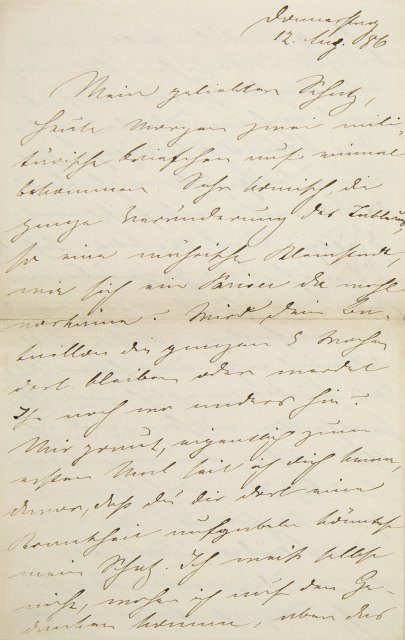 Donnerstag
12. Aug. 86
Mein geliebter Schatz,
heute Morgen zwei mili-
türische Briefchen auf einmal
bekommen. Sehr komisch die
ganze Veränderung des
so eine mährische Kleinstadt,
wie sich ein Pariser die wohl
vorkäme? Wird Dein Ba-
taillon die ganzen 5 Wochen
dort bleiben oder werdet
Ihr noch wo anders hin?
Mir graut, eigentlich zum
ersten Mal seit ich Dich kenne,
davor, daß Du Dir dort eine
Krankheit aufgabeln könntest
mein Schatz. Ich weiß selbst
nicht, woher ich auf den Ge-
danken komme, aber das